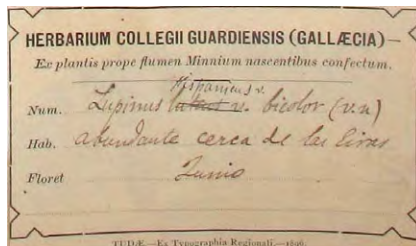 HERBARIUM COLLEGII GUARDIENSIS (GALLÆCIA)—
Ex plantis prope flumen Minnium nascentibus confectum.
Hispanicus v.
Num. Lupinus luteus v. bicolor (v.n)
Hab. abundante cerca de las Eiras
Floret Junio
TUDÆ.—Ex Typographia Regionali.—1896.